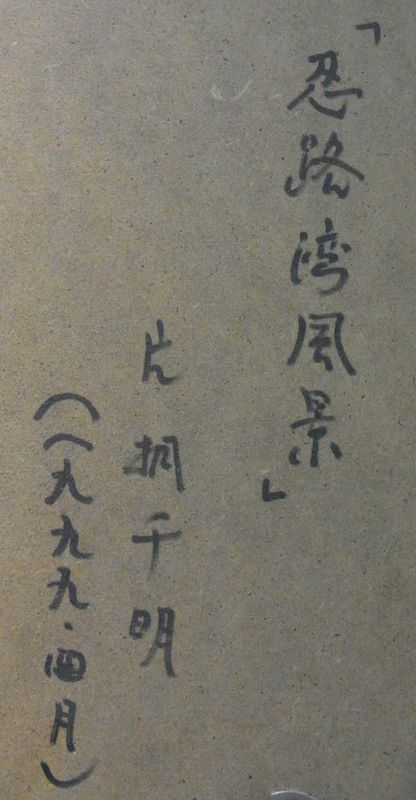 「忍路湾風景」
片桐千明
（一九九九・四月）